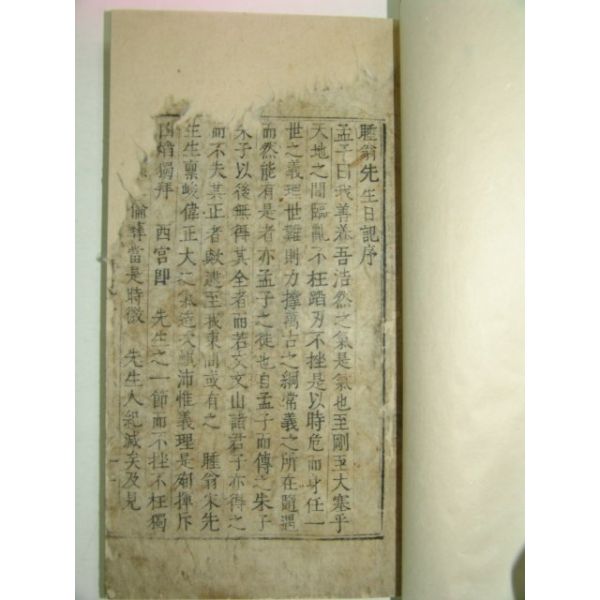 腫翁先生日記序
孟子曰我善養吾浩然之氣是氣也至剛至大塞乎
天地之間臨亂不枉蹈刃不挫是以時危而身任一
世之義理世難則力撑萬古之綱常義之所在隨遇
而然能有是者亦孟子之徒也自孟子而傳之朱子
朱子以後無得其全者而若文文山諸君子亦得之
而不失其正者歟逮至我東間或有之 腫翁宋先
生生稟峻偉正大之氣造次顚沛惟義理是 揮斥
凶焰獨拜 西宮卽 先生之一節而不挫不枉獨
倫 當是時微 先生人紀滅矣及見